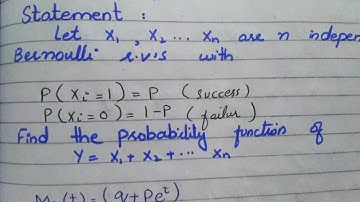 Statement :
Let X1 , X2 ... Xn are n indepen
Bernoulli r.v.s with
P( Xi = 1) = P (success)
P( Xi = 0) = 1-P (failur)
Find the probability function of
Y = X1 + X2 + ... Xn
(t) = (q + Pe^t)